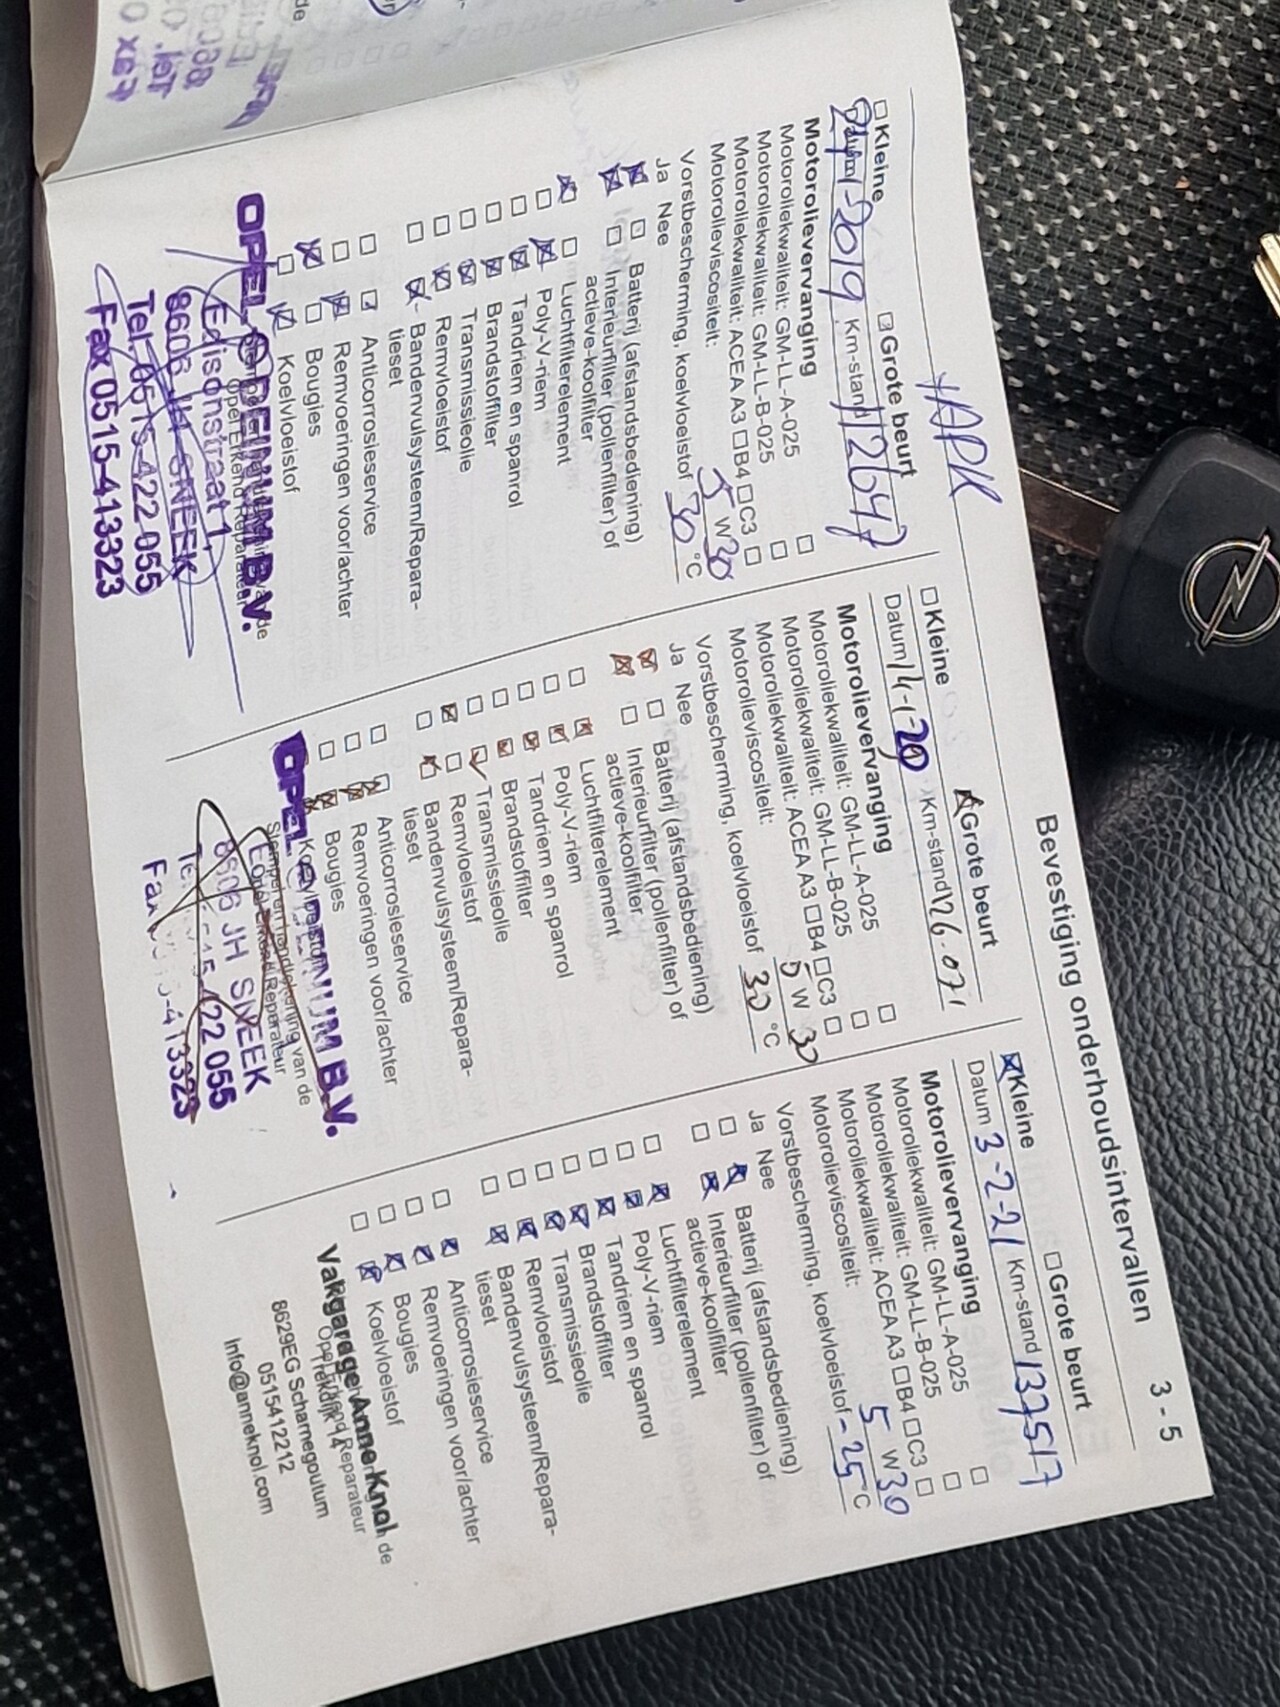 Bevestiging onderhoudsintervallen 3 - 5
+APK
Kleine Grote beurt
2019 Km-stand 112647
Motorolievervanging
Motoroliekwaliteit: GM-LL-A-025
Motoroliekwaliteit: GM-LL-B-025
Motoroliekwaliteit: ACEA A3 B4 C3
Motorolieviscositeit: 5 W 30
Vorstbescherming, koelvloeistof 30 °C
Ja Nee
Batterij (afstandsbediening)
Interieurfilter (pollenfilter) of
actieve-koolfilter
Luchtfilterelement
Poly-V-riem
Tandriem en spanrol
Brandstoffilter
Transmissieolie
Remvloeistof
Bandenvulsysteem/Repara-
tieset
Anticorrosieservice
Remvoeringen voor/achter
Bougies
Koelvloeistof
Opel Erkend Reparateur
OPEL DEINUM B.V.
Edisonstraat 1,
8606 JH SNEEK
Tel. 0515-422 055
Fax 0515-413323
Kleine Grote beurt
Datum 14-1-20 Km-stand 126.071
Motorolievervanging
Motoroliekwaliteit: GM-LL-A-025
Motoroliekwaliteit: GM-LL-B-025
Motoroliekwaliteit: ACEA A3 B4 C3
Motorolieviscositeit: 5 W 30
Vorstbescherming, koelvloeistof 30 °C
Ja Nee
Batterij (afstandsbediening)
Interieurfilter (pollenfilter) of
actieve-koolfilter
Luchtfilterelement
Poly-V-riem
Tandriem en spanrol
Brandstoffilter
Transmissieolie
Remvloeistof
Bandenvulsysteem/Repara-
tieset
Anticorrosieservice
Remvoeringen voor/achter
Bougies
Koelvloeistof
Stempel en handtekening van de
Opel Erkend Reparateur
OPEL DEINUM B.V.
8606 JH SNEEK
422 055
Fax 413323
Kleine Grote beurt
Datum 3-2-21 Km-stand 137517
Motorolievervanging
Motoroliekwaliteit: GM-LL-A-025
Motoroliekwaliteit: GM-LL-B-025
Motoroliekwaliteit: ACEA A3 B4 C3
Motorolieviscositeit: 5 W 30
Vorstbescherming, koelvloeistof -25 °C
Ja Nee
Batterij (afstandsbediening)
Interieurfilter (pollenfilter) of
actieve-koolfilter
Luchtfilterelement
Poly-V-riem
Tandriem en spanrol
Brandstoffilter
Transmissieolie
Remvloeistof
Bandenvulsysteem/Repara-
tieset
Anticorrosieservice
Remvoeringen voor/achter
Bougies
Koelvloeistof
de
Opel Erkend Reparateur
Vakgarage Anne Knol
8629EG Scharnegoutum
0515412212
Info@anneknol.com